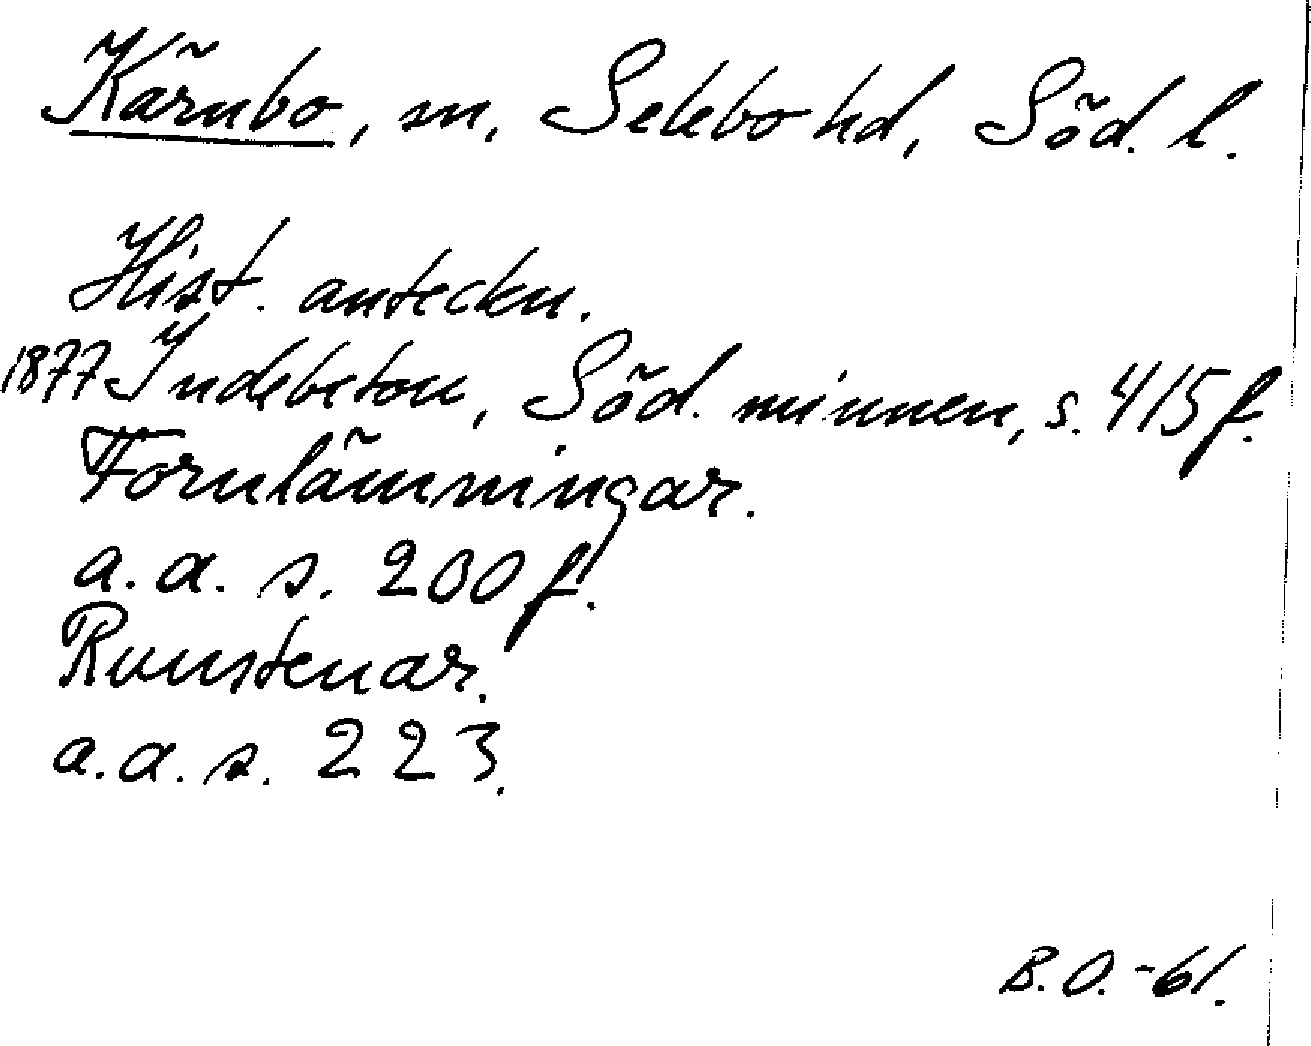 Kärnbo, sn, Selebo hd, Söd. l.
Hist. anteckn.
1877 Indebetou, Söd. minnen, s. 415 f.
Fornlämningar.
a. a. s. 200 f.
Runstenar.
a. a. s. 223.
B. O. -61.